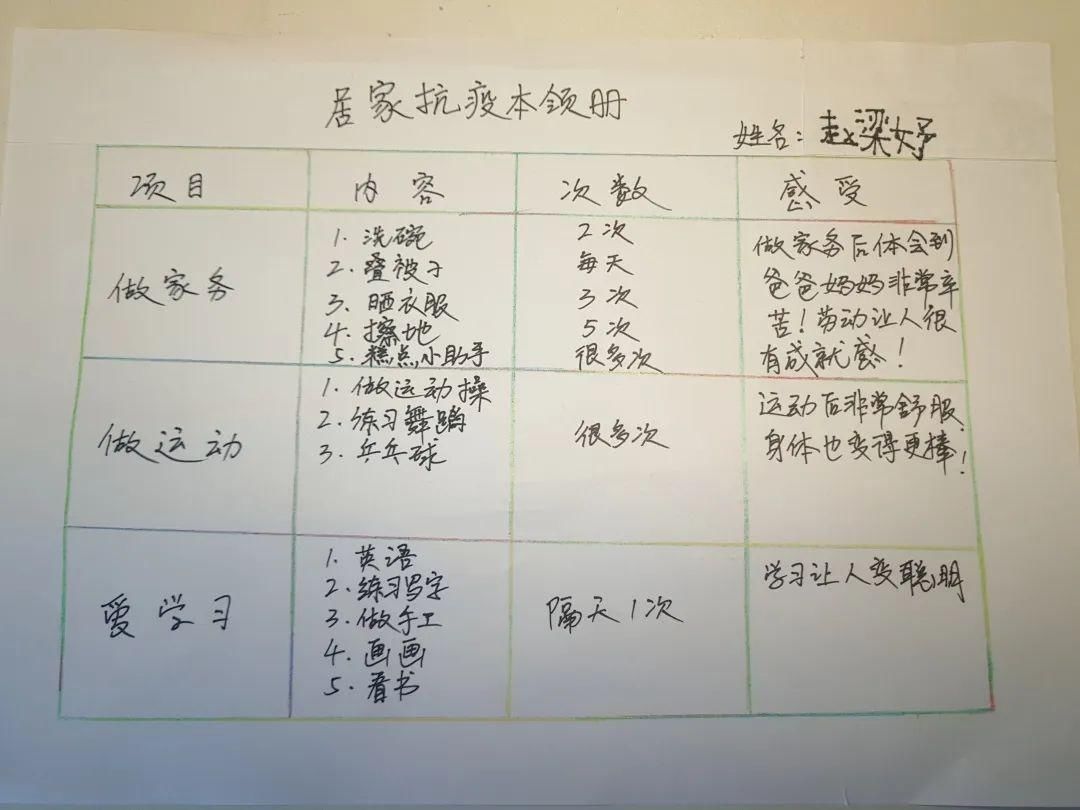 居家抗疫本领册
姓名：赵梁妤
项目 内容 次数 感受
做家务
1. 洗碗
2. 叠被子
3. 晒衣服
4. 擦地
5. 糕点小助手
2次
每天
3次
5次
很多次
做家务后体会到
爸爸妈妈非常辛
苦！劳动让人很
有成就感！
做运动
1. 做运动操
2. 练习舞蹈
3. 乒乓球
很多次
运动后非常舒服
身体也变得更棒！
爱学习
1. 英语
2. 练习写字
3. 做手工
4. 画画
5. 看书
隔天1次
学习让人变聪明